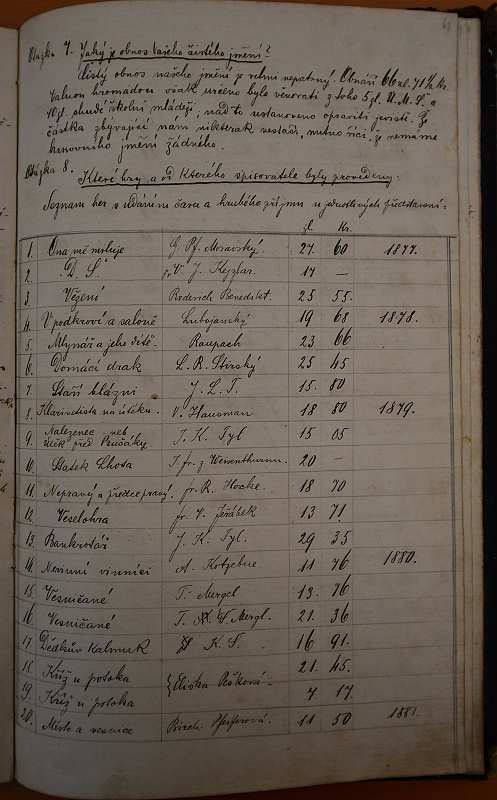 Otázka 7. Jaký je obnos Vašeho čistého jmění?
Čistý obnos našeho jmění je velmi nepatrný. Obnáší 66 zl. 71 ½ kr.
Valnou hromadou však určeno bylo věnovati z toho 5 zl. Ú. M. Š. a
40 zl. chudé školní mládeži; nad to ustanoveno opraviti jeviště. Že
částka zbývající nám nikterak nestačí, nutno říci, že nemáme
hotového jmění žádného.
Otázka 8. Které hry a od kterého spisovatele byly provedeny:
Seznam her s udáním času a hrubého příjmu u jednotlivých představení:
zl. Kr.
1. Ona mě miluje G. Pf. Moravský. 27. 60 1877.
2. D. S. V. J. Kejzlar. 17 —
3. Vězení Roderich Benedikt. 25 55.
4. V podkroví a saloně Lubojanský 19 68 1878.
5. Mlynář a jeho dítě. Raupach 23 66
6. Domácí drak L. R. Stirský 25 45
7. Staří blázni J. L. T. 15. 80
8. Klarinetista na útěku. V. Hausman 18 80 1879.
9. Nalezenec neb útěk před Prušáky J. K. Tyl 15 05
10. Statek Lhota J. fr. z Weisenthurnu. 20 —
11. Nepravý a předce pravý. fr. R. Hocke. 18 70
12. Veselohra fr. V. Jeřábek 13 71
13. Bankrotář J. K. Tyl. 29 35
14. Nevinní vinníci A. Kotzebue 11 76 1880.
15. Vesničané T. Mergel 13. 76
16. Vesničané T. S. Mergl. 21. 36
17. Dědkův Kalmuk K. S. 16 91.
18. Kříž u potoka 21. 45.
Eliška Pešková
19. Kříž u potoka 7. 17.
20. Město a vesnice Birch-Pfeiferová. 11 50 1881.